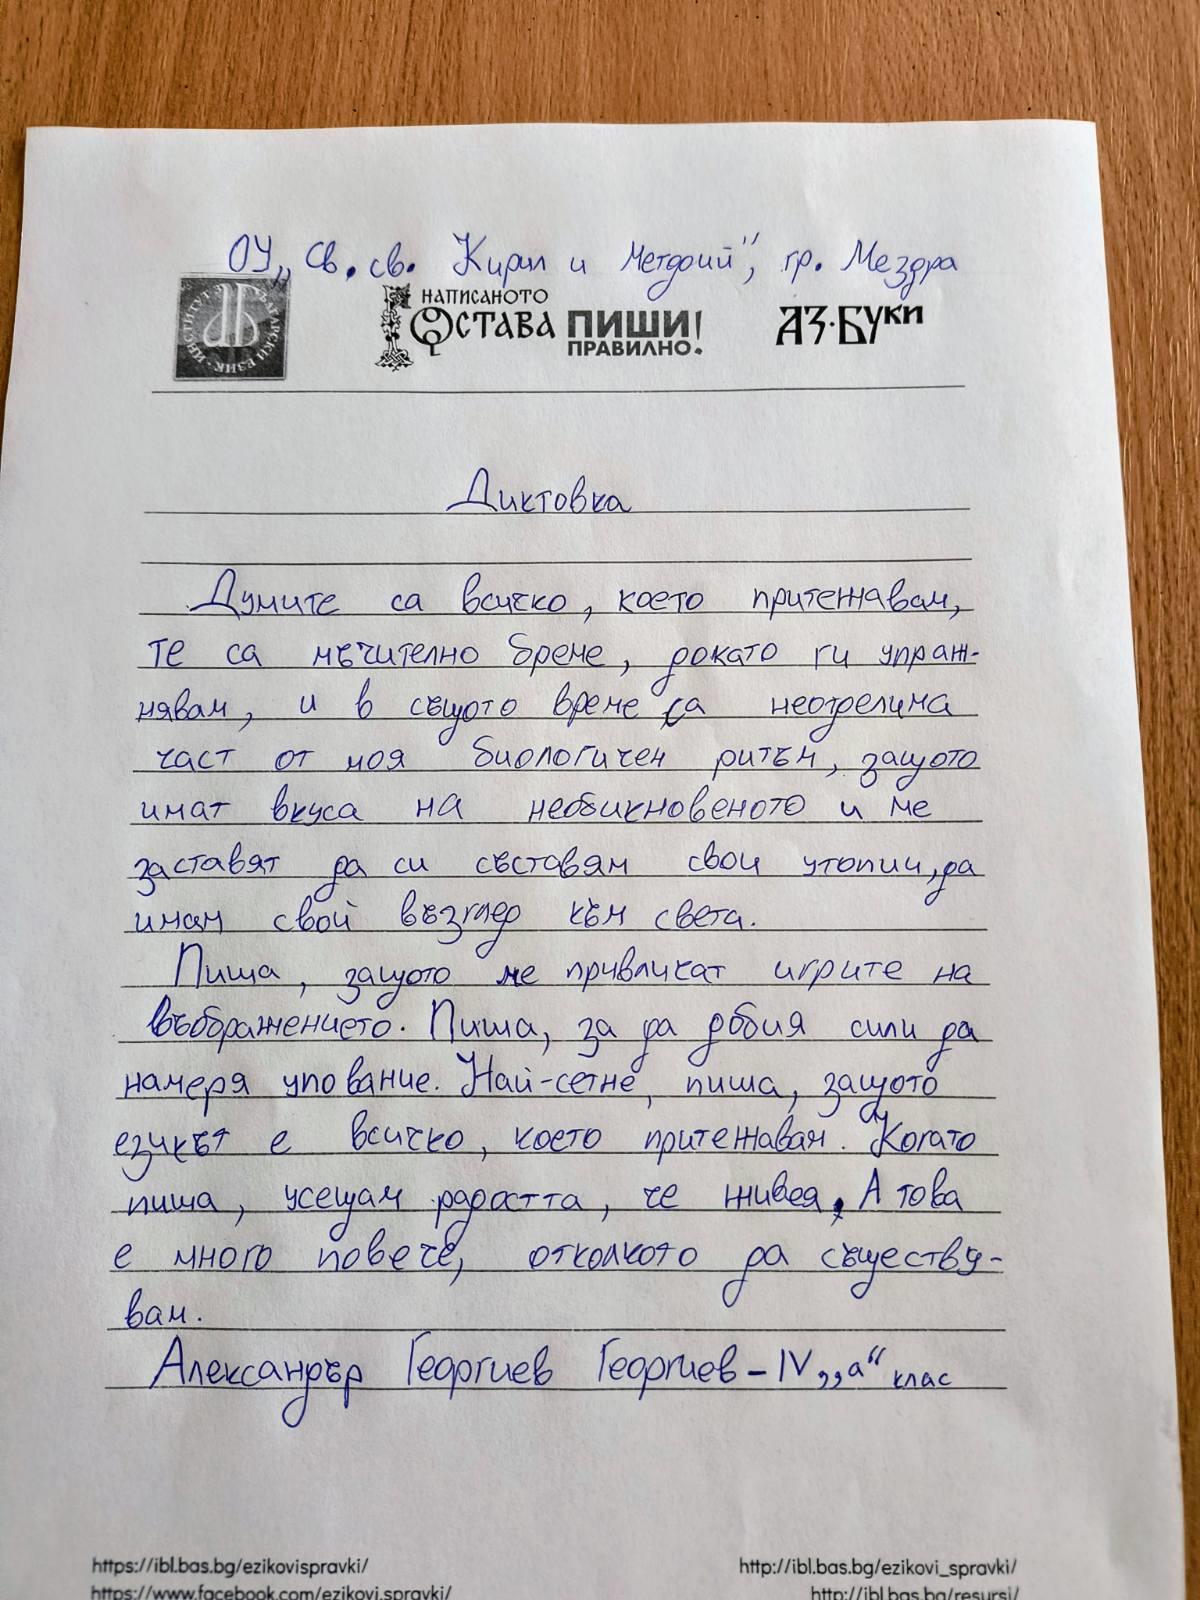 ОУ „Св. св. Кирил и Метдоий“, гр. Мездра
ИНСТИТУТ ЗА БЪЛГАРСКИ ЕЗИК
НАПИСАНОТО ОСТАВА ПИШИ ПРАВИЛНО! АЗ·БУКИ
Диктовка
Думите са всичко, което притежавам,
те са мъчително бреме, докато ги упраж-
нявам, и в същото време са неотделима
част от моя биологичен ритъм, защото
имат вкуса на необикновеното и ме
заставят да си съставям свои утопии, да
имам свой възглед към света.
Пиша, защото ме привличат игрите на
въображението. Пиша, за да добия сили да
намеря упование. Най-сетне, пиша, защото
езикът е всичко, което притежавам. Когато
пиша, усещам радостта, че живея. А това
е много повече, отколкото да съществу-
вам.
Александър Георгиев Георгиев - IV „а“ клас
https://ibl.bas.bg/ezikovispravki/ http://ibl.bas.bg/ezikovi_spravki/
https://www.facebook.com/ezikovi.spravki/ http://ibl.bas.bg/resursi/